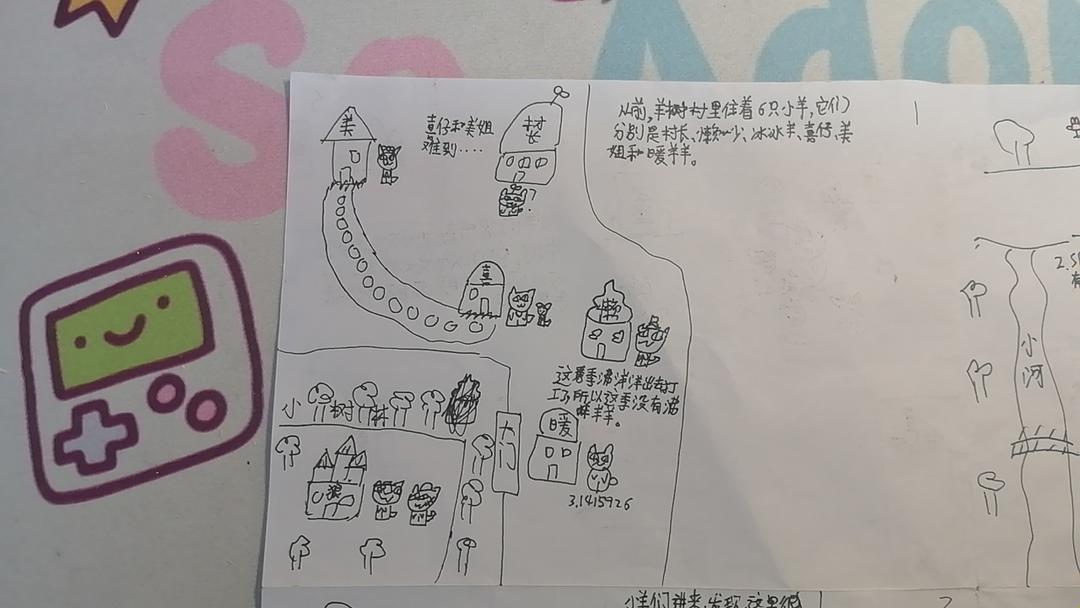 So Ado
美
喜仔和美姐
难到....
村
长
?
从前,羊村里住着6只小羊,它们
分别是村长、懒、冰冰羊、喜仔、美
姐和暖羊羊。
1
喜
懒
这季沸洋洋出去打
工了所以这季没有沸
羊羊。
小树林
大门
暖
狼
3.1415926
小河
2.5
小羊们进来,发现,这里很
2